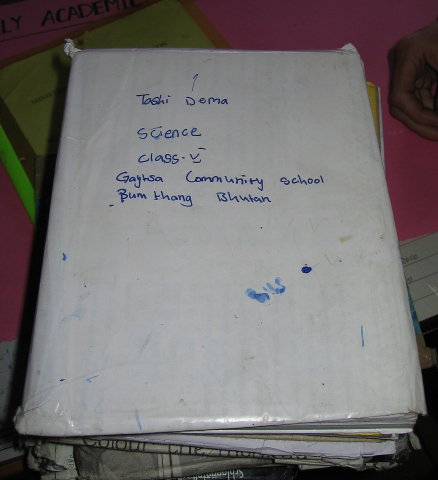 LY ACADEMIC
Tashi Dema
Science
Class. V
Gaytsa Community School
Bumthang Bhutan
Colour the